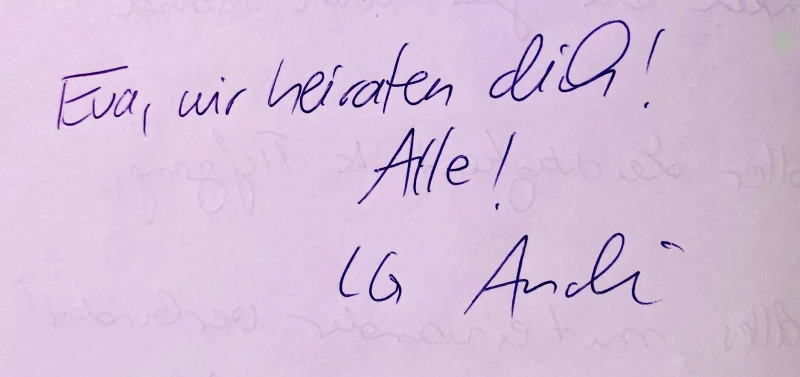 Eva, wir heiraten dich!
Alle!
LG Andi